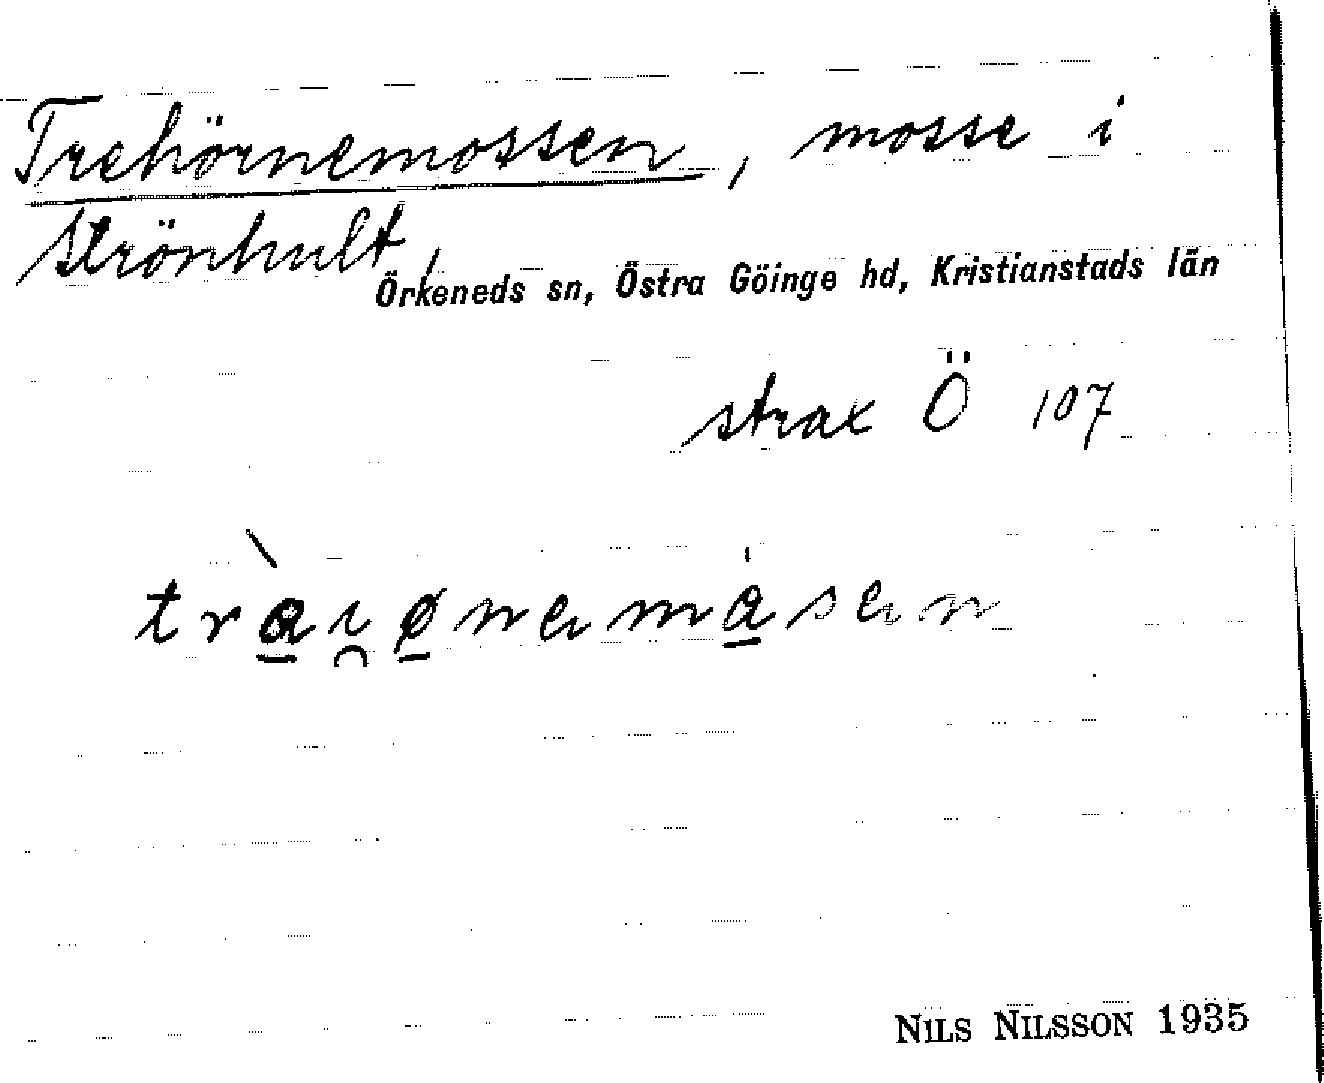 Trehörnemossen, mosse i
Strönhult,
Örkeneds sn, Östra Göinge hd, Kristianstads län
strax Ö 107
NILS NILSSON 1935